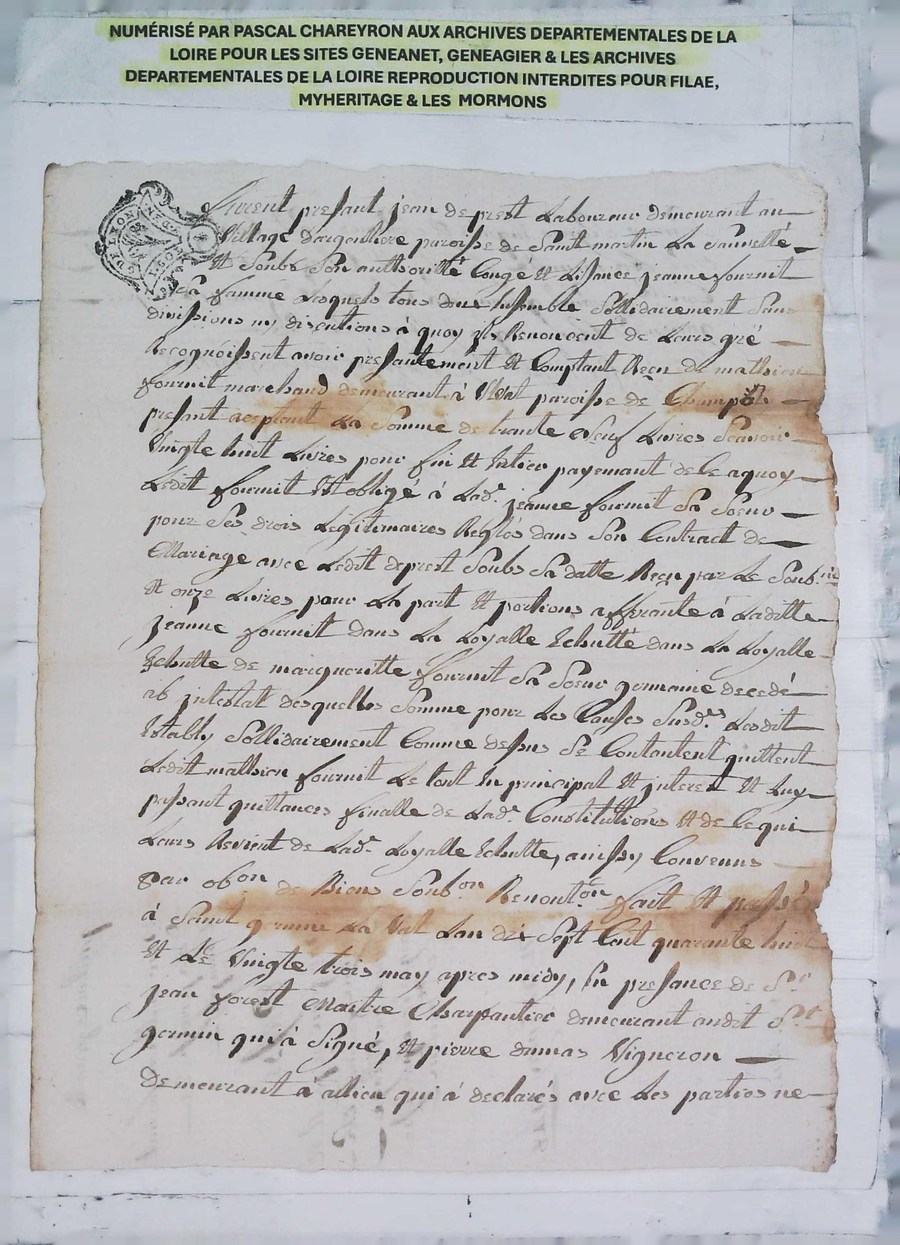 NUMÉRISÉ PAR PASCAL CHAREYRON AUX ARCHIVES DEPARTEMENTALES DE LA
LOIRE POUR LES SITES GENEANET, GENEAGIER & LES ARCHIVES
DEPARTEMENTALES DE LA LOIRE REPRODUCTION INTERDITES POUR FILAE,
MYHERITAGE & LES MORMONS
furent presant jean deprest Laboureur demeurant au
Village paroisse de Saint martin La Sauvetté
Et Soubs Son authoritté Congé et Lisance jeanne fournit
Sa famme Lesquels tous deux Ensemble Sollidairement Sans
divisions ny discutions à quoy ils Renoncent de Leurs gré
Recognoissent avoir presantement Et Comptant Reçu de mathieu
fournit marchand demeurant à paroisse de
presant aceptant La Somme de trante neuf Livres Scavoir
Vingte huit Livres pour fin Et Entier payemant de Ce aquoy
Ledit fournit Est obligé à Lad.e jeanne fournit Sa Soeur
pour Ses drois Légitimaires Reglés dans Son Contract de
Mariage avec Ledit deprest Soubs Sa datte Reçu par Le Soub.né
Et onze Livres pour La part Et portions afferante à Laditte
jeanne fournit dans La Loyalle Echutté dans La Loyalle
Echutte de margueritte fournit Sa Soeur germaine decedé
ab intestat desquelles Somme pour Les Causes Susd.es Lesdit
Establys Sollidairement Comme dessus Se Contantent quittent
Ledit mathieu fournit de tout En principal Et interest Et Luy
passant quittances finalle de Lad.e Constitutions Et de Ce qui
Leurs Revient de Lad.e Loyalle Echutte, ainssy Convenus
Par ob.on de Biens Soub.on Renont.on fait Et passé
à Saint La Val Lan dix Sept Cent quarante huit
Et Le Vingte trois may apres midy, En presance de S.r
jean forest Maitre Charpantier demeurant audit S.t
germin qui à Signé, Et pierre dumas Vigneron
demeurant à allieu qui à declarés avec Les parties ne